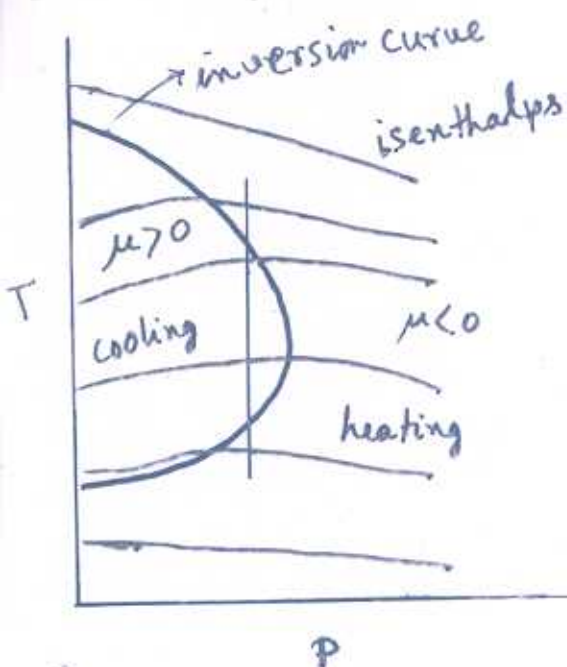 inversion curve
isenthalps
μ>0
T
cooling
μ<0
heating
P